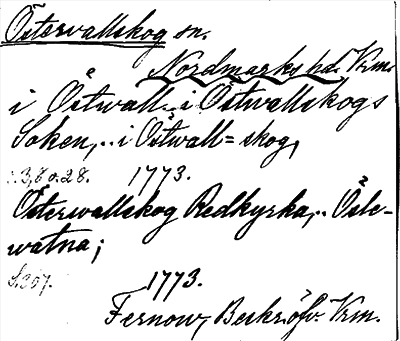 Östervallskog sn.
Nordmarks hd. Vrm.
i Östwall.. i Östwallskogs
Soken,.. i Östwall=skog,
s. 3, 8 o. 28. 1773.
Österwallskog Redkyrka,.. Öste-
watna;
S. 307. 1773.
Fernow, Beskr. öfv. Vrm.